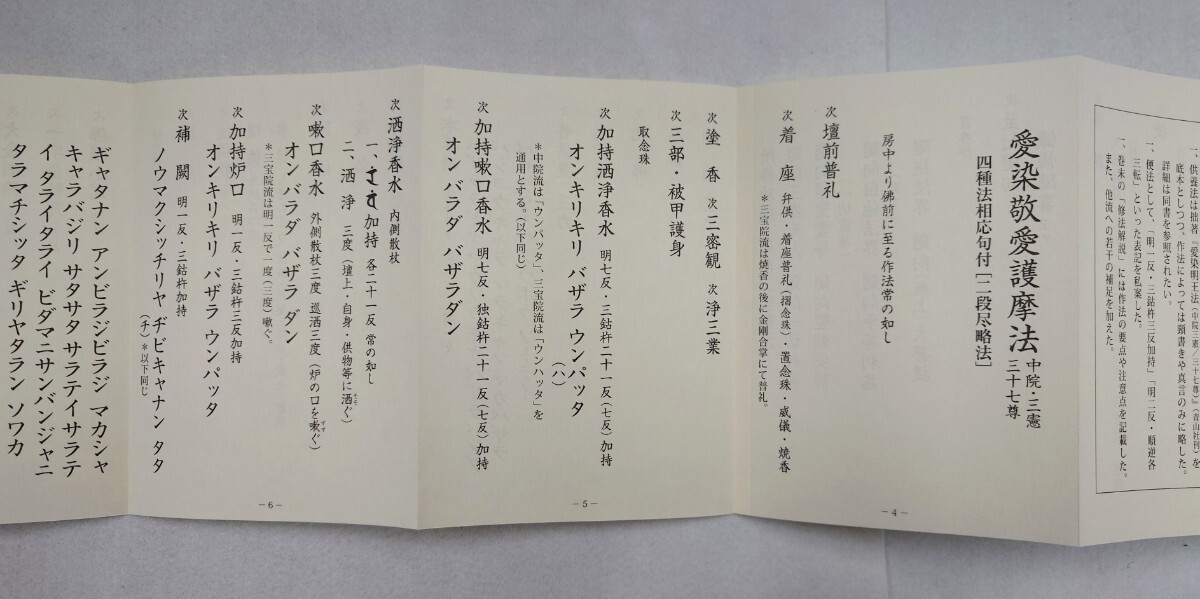 一、供養法は拙著『愛染明王法(中院三憲/三十七尊)』(青山社刊)を
底本としつつ。作法によっては頭書きや真言のみに略した。
詳細は同書を参照されたい。
一、便法として、「明一反・三鈷杵三反加持」「明二反・順逆各
三転」といった表記を私案した。
一、巻末の「修法解説」には作法の要点や注意点を記載した。
また、他流への若干の補足を加えた。
愛染敬愛護摩法 中院・三憲
三十七尊
四種法相応句付[二段尽略法]
房中より佛前に至る作法常の如し
次 壇前普礼
次 着座 弁供・着座普礼(摺念珠)・置念珠・威儀・焼香
*三宝院流は焼香の後に金剛合掌にて普礼。
-4-
次 塗香 次 三密観 次 浄三業
次 三部・被甲護身
取念珠
次 加持洒浄香水 明七反・三鈷杵二十一反(七反)加持
オンキリキリ バザラ ウンパッタ
(ハ)
*中院流は「ウンパッタ」、三宝院流は「ウンハッタ」を
通用とする。(以下同じ)
次 加持嗽口香水 明七反・独鈷杵二十一反(七反)加持
オン バラダ バザラダン
-5-
次 洒浄香水 内側散杖
一、加持 各二十一反 常の如し
二、洒浄 三度(壇上・自身・供物等に洒ぐ)
次 嗽口香水 外側散杖三度 巡洒三度(炉の口を嗽ぐ)
オン バラダ バザラ ダン
*三宝院流は明一反で一度(三度)嗽ぐ。
次 加持炉口 明一反・三鈷杵三反加持
オンキリキリ バザラ ウンパッタ
次 補闕 明一反・三鈷杵加持
ノウマクシッチリヤ ヂビキャナン タタ
(チ)*以下同じ
-6-
ギャタナン アンビラジビラジ マカシャ
キャラバジリ サタサタ サラテイサラテ
イ タライタライ ビダマニサンバンジャニ
タラマチシッタ ギリヤタラン ソワカ